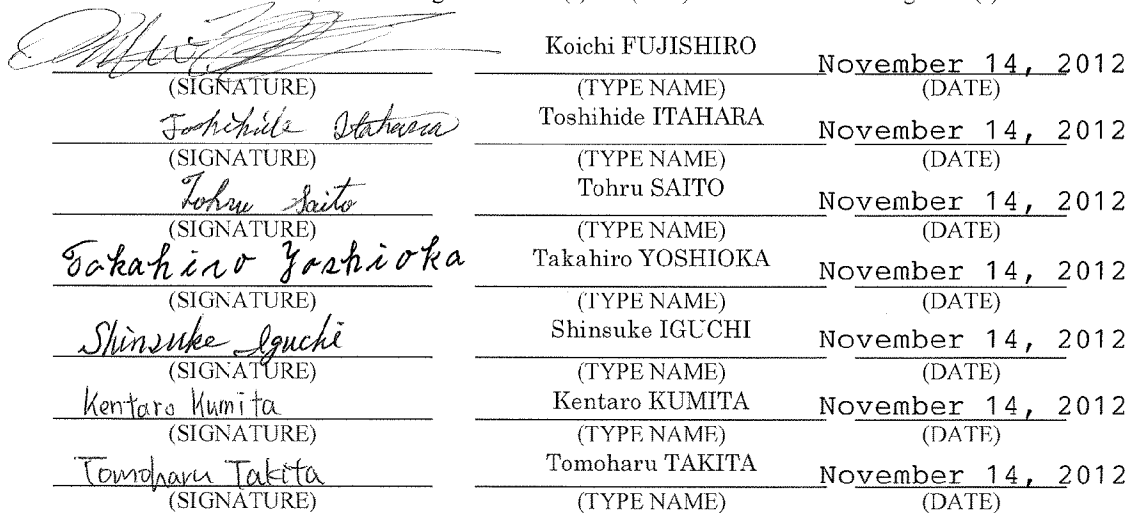 Koichi FUJISHIRO November 14, 2012
(SIGNATURE) (TYPE NAME) (DATE)
Toshihide Itahara Toshihide ITAHARA November 14, 2012
(SIGNATURE) (TYPE NAME) (DATE)
Tohru Saito Tohru SAITO November 14, 2012
(SIGNATURE) (TYPE NAME) (DATE)
Takahiro Yoshioka Takahiro YOSHIOKA November 14, 2012
(SIGNATURE) (TYPE NAME) (DATE)
Shinsuke Iguchi Shinsuke IGUCHI November 14, 2012
(SIGNATURE) (TYPE NAME) (DATE)
Kentaro Kumita Kentaro KUMITA November 14, 2012
(SIGNATURE) (TYPE NAME) (DATE)
Tomoharu Takita Tomoharu TAKITA November 14, 2012
(SIGNATURE) (TYPE NAME) (DATE)